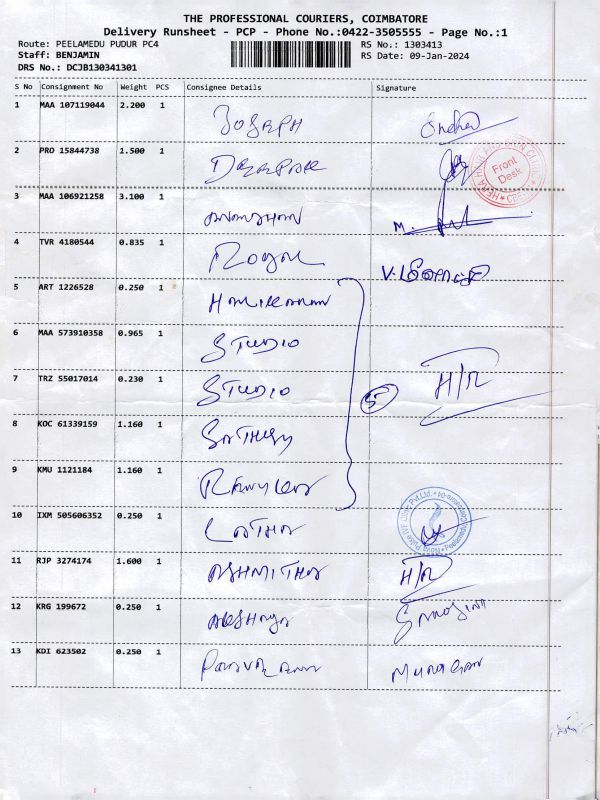 THE PROFESSIONAL COURIERS, COIMBATORE
Delivery Runsheet - PCP - Phone No.:0422-3505555 - Page No.:1
Route: PEELAMEDU PUDUR PC4 RS No.: 1303413
Staff: BENJAMIN RS Date: 09-Jan-2024
DRS No.: DCJB130341301
S No Consignment No Weight PCS Consignee Details Signature
1 MAA 107119044 2.200 1 Joseph
2 PRO 15844738 1.500 1 Deepak
Front Desk
3 MAA 106921258 3.100 1
4 TVR 4180544 0.835 1 Royal
5 ART 1226528 0.250 1
6 MAA 573910358 0.965 1 STUDIO
7 TRZ 55017014 0.230 1 STUDIO 5 H/R
8 KOC 61339159 1.160 1
9 KMU 1121184 1.160 1
10 IXM 505606352 0.250 1 LATHA
11 RJP 3274174 1.600 1 ASHMITHA H/R
12 KRG 199672 0.250 1 AKSHAYA
13 KDI 623502 0.250 1 Murugan